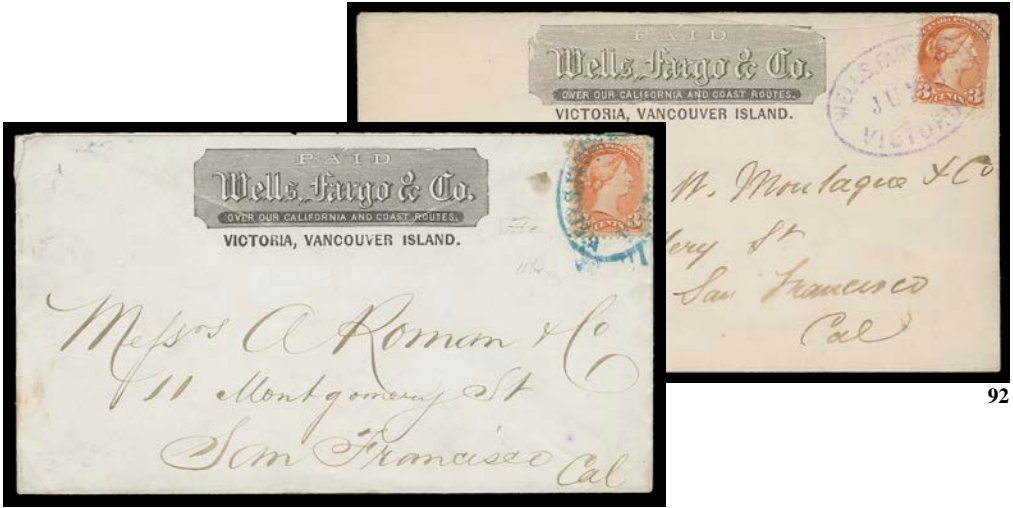 PAID
Wells, Fargo & Co.
OVER OUR CALIFORNIA AND COAST ROUTES.
VICTORIA, VANCOUVER ISLAND.
WELLS, FARGO
JU
VICTOR
3 CENTS 3
W. Montague & Co
St
San Francisco
Cal
92
PAID
Wells, Fargo & Co.
OVER OUR CALIFORNIA AND COAST ROUTES.
VICTORIA, VANCOUVER ISLAND.
CENTS 3
Messrs A Roman & Co
11 Montgomery St
San Francisco Cal